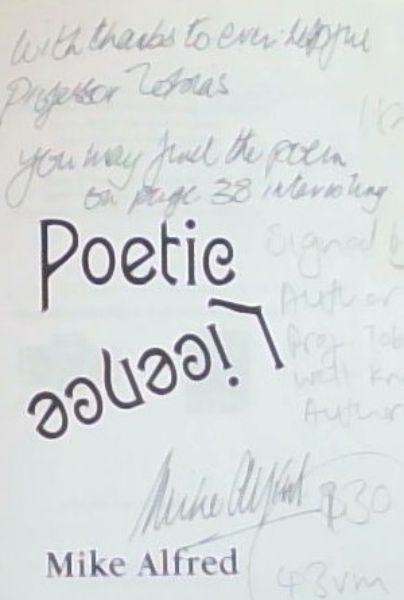 With thanks to ever helpful
Professor Tobias
You may find the poem
on page 38 interesting
Poetic
Licence
Signed b
Author
Prof. Tob
well kn
Author
Mike Alfred
R30
Mike Alfred